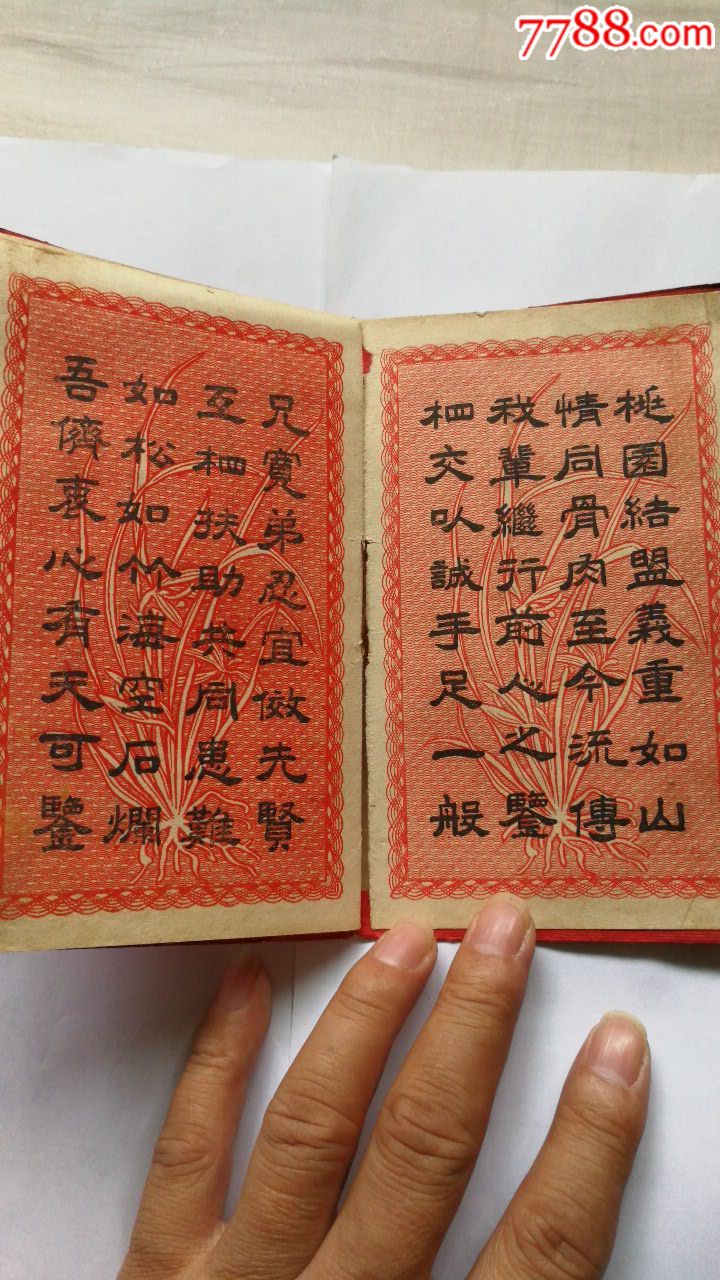 7788.com
桃園結盟義重如山
情同骨肉至今流傳
我輩繼行前心之鑒
相交以誠手足一般
兄寬弟忍宜倣先賢
互相扶助共同患難
如松如竹海空石爛
吾儕衷心有天可鑒